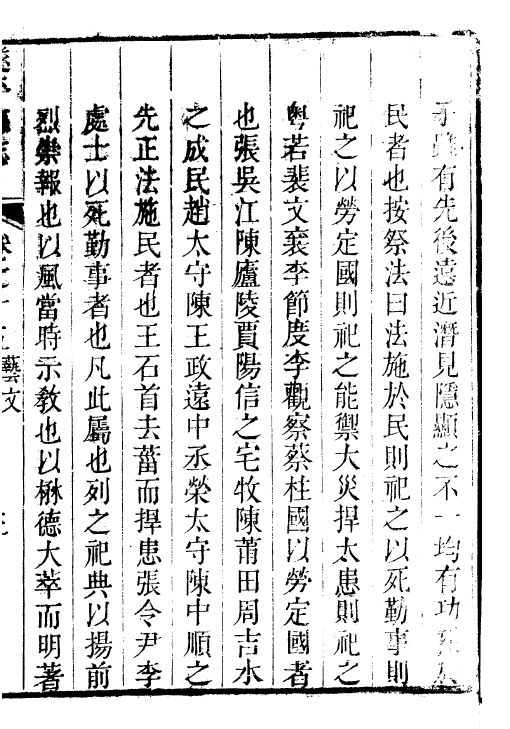 有先後遠近潛見隱顯之不一均有功
民者也按祭法曰法施於民則祀之以死勤事則
祀之以勞定國則祀之能禦大災捍大患則祀之
粵若裴文襄李節度李觀察蔡柱國以勞定國者
也張吳江陳廬陵賈陽信之宅牧陳莆田周吉水
之成民趙太守陳王政遠中丞榮太守陳中順之
先正法施民者也王石首去菑而捍患張令尹李
處士以死勤事者也凡此屬也列之祀典以揚前
烈崇報也以風當時示教也以楙德大萃而明著
藝文